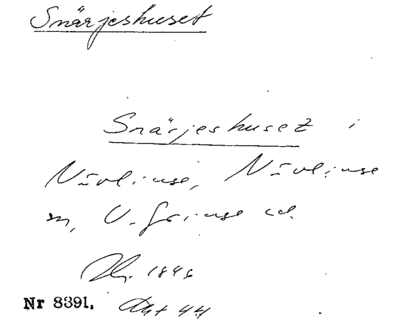 Snärjeshuset
Snärjeshuset i
Nävlinge, Nävlinge
sn, V. Göinge hd.
1846
Nr 8391. Akt 44